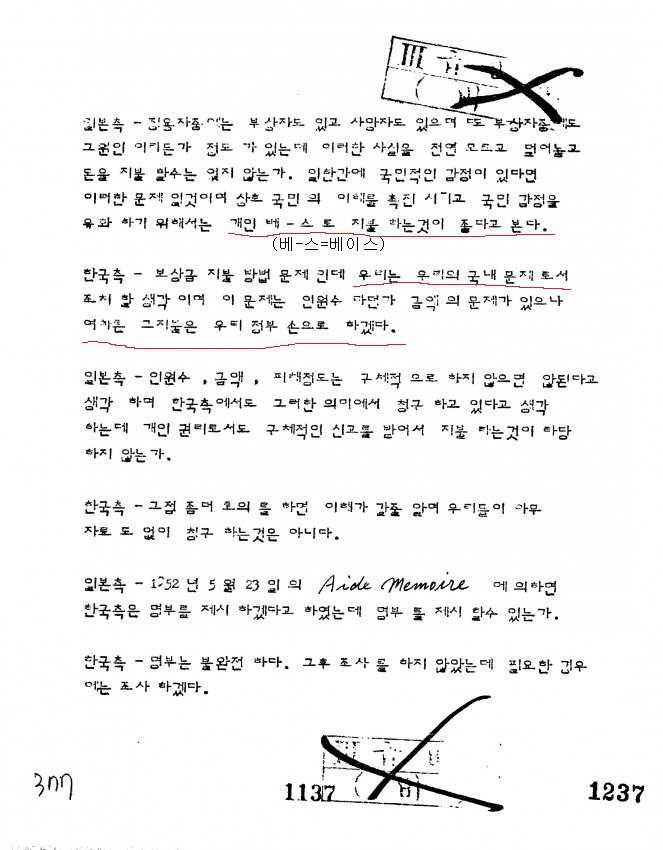 일본측 - 징용자중에는 부상자도 있고 사망자도 있으며 또 부상자중에도
그원인 이라든가 정도 가 있는데 이러한 사실을 전연 모르고 덮어놓고
돈을 지불 할수는 없지 않는가. 일한간에 국민적인 감정이 있다면
이러한 문제 일것이며 상호 국민 의 이해를 촉진 시키고 국민 감정을
유화 하기 위해서는 개인 베 - 스 로 지불 하는것이 좋다고 본다.
(베-스=베이스)
한국측 - 보상금 지불 방법 문제 인데 우리는 우리의 국내 문제 로서
조치 할 생각 이며 이 문제는 인원수 라던가 금액 의 문제가 있으나
여하튼 그지불은 우리 정부 손으로 하겠다.
일본측 - 인원수 , 금액 , 피해정도는 구체적 으로 하지 않으면 않된다고
생각 하며 한국측에서도 그러한 의미에서 청구 하고 있다고 생각
하는데 개인 권리로서도 구체적인 신고를 받어서 지불 하는것이 타당
하지 않는가.
한국측 - 그점 좀더 토의 를 하면 이해가 갈줄 알며 우리들이 아무
자료 도 없이 청구 하는것은 아니다.
일본측 - 1952 년 5 월 23 일 의 Aide Memoire 에 의하면
한국측은 명부를 제시 하겠다고 하였는데 명부 를 제시 할수 있는가.
한국측 - 명부는 불완전 하다. 그후 조사 를 하지 않았는데 필요한 경우
에는 조사 하겠다.
377
1137
1237